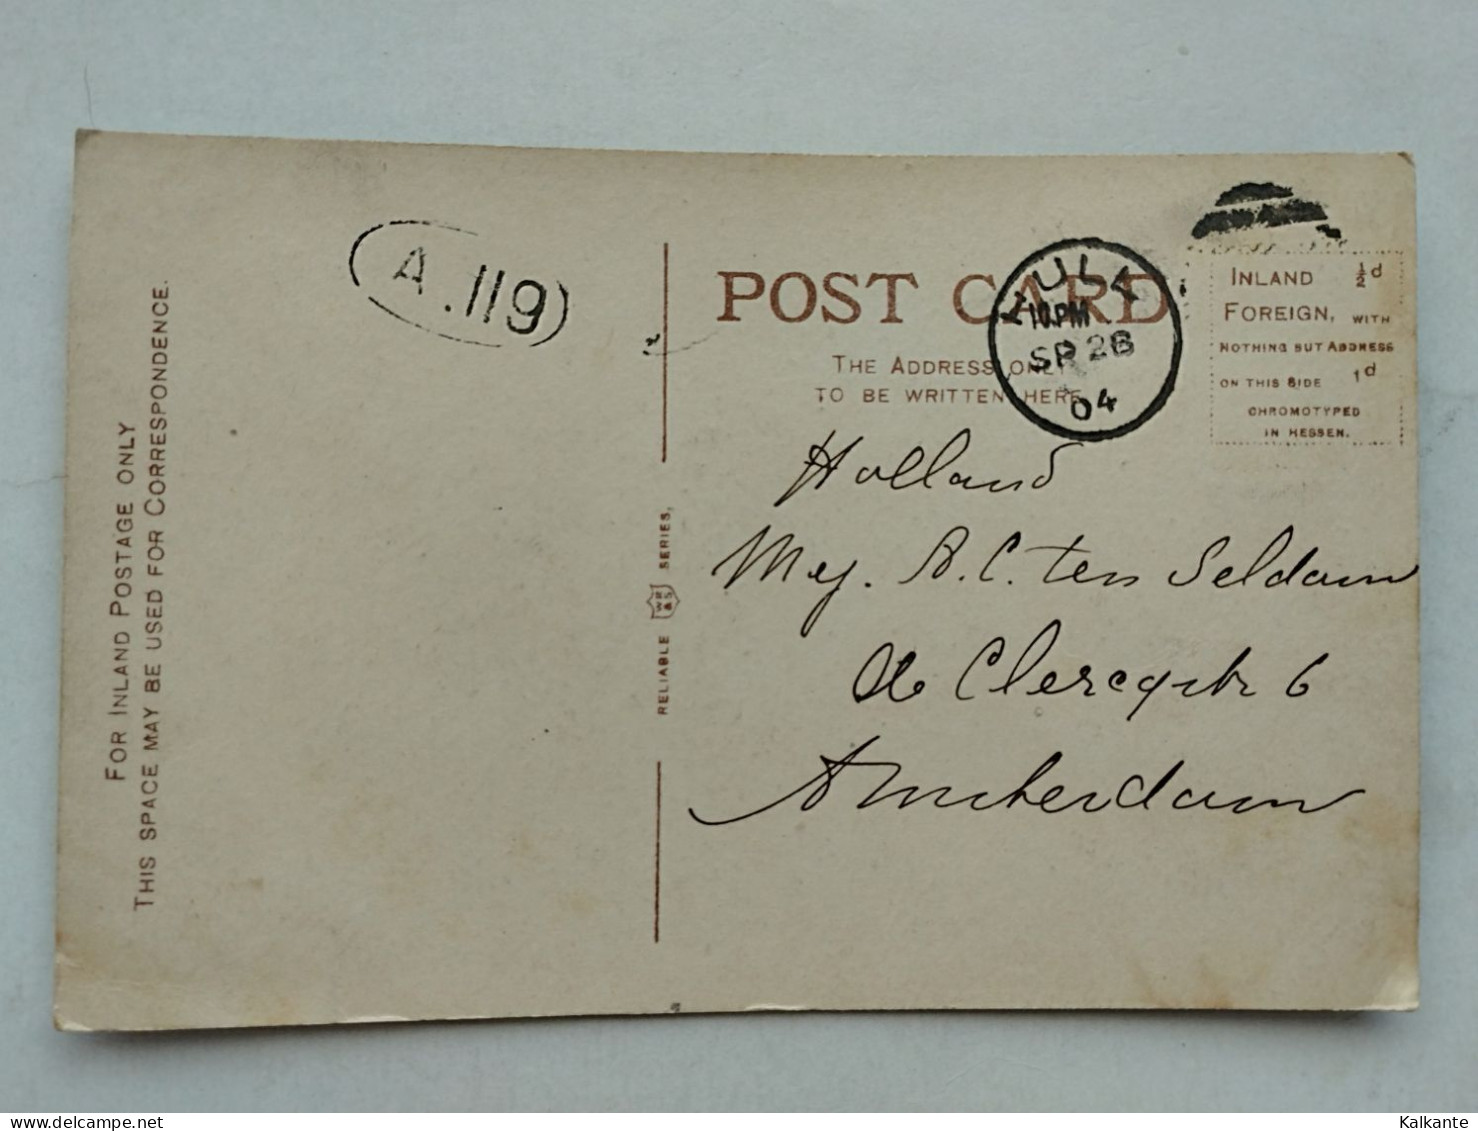 FOR INLAND POSTAGE ONLY
THIS SPACE MAY BE USED FOR CORRESPONDENCE.
A.119
RELIABLE WR&S SERIES.
POST CARD
THE ADDRESS ONLY
TO BE WRITTEN HERE
HULL
10.PM
SP 28
04
INLAND ½d
FOREIGN, WITH
NOTHING BUT ADDRESS
ON THIS SIDE 1d
CHROMOTYPED
IN HESSEN.
Holland
Mej. A. C. ten Seldam
de Clercqstr 6
Amsterdam
Kalkante